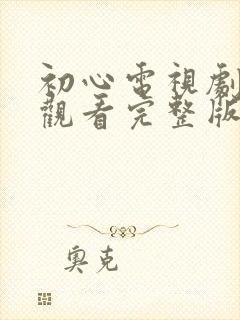 初心電視劇
觀看完整版
奧克